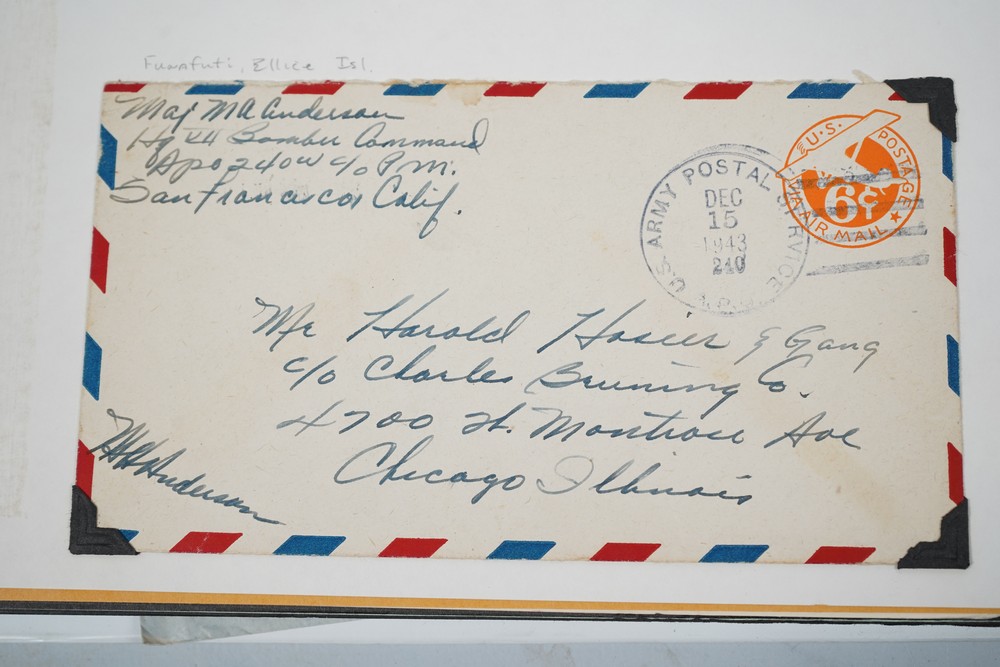 Funafuti, Ellice Isl.
Maj MA Anderson
Hq VII Bomber Command
Apo 240 c/o P.M.
San Francisco, Calif.
U.S. ARMY POSTAL SERVICE
DEC
15
1943
240
A.P.O.
U.S. POSTAGE
6¢
VIA AIR MAIL
Mr Harold Hosier & Gang
c/o Charles Bruning Co.
4700 W. Montrose Ave
Chicago Illinois
MA Anderson